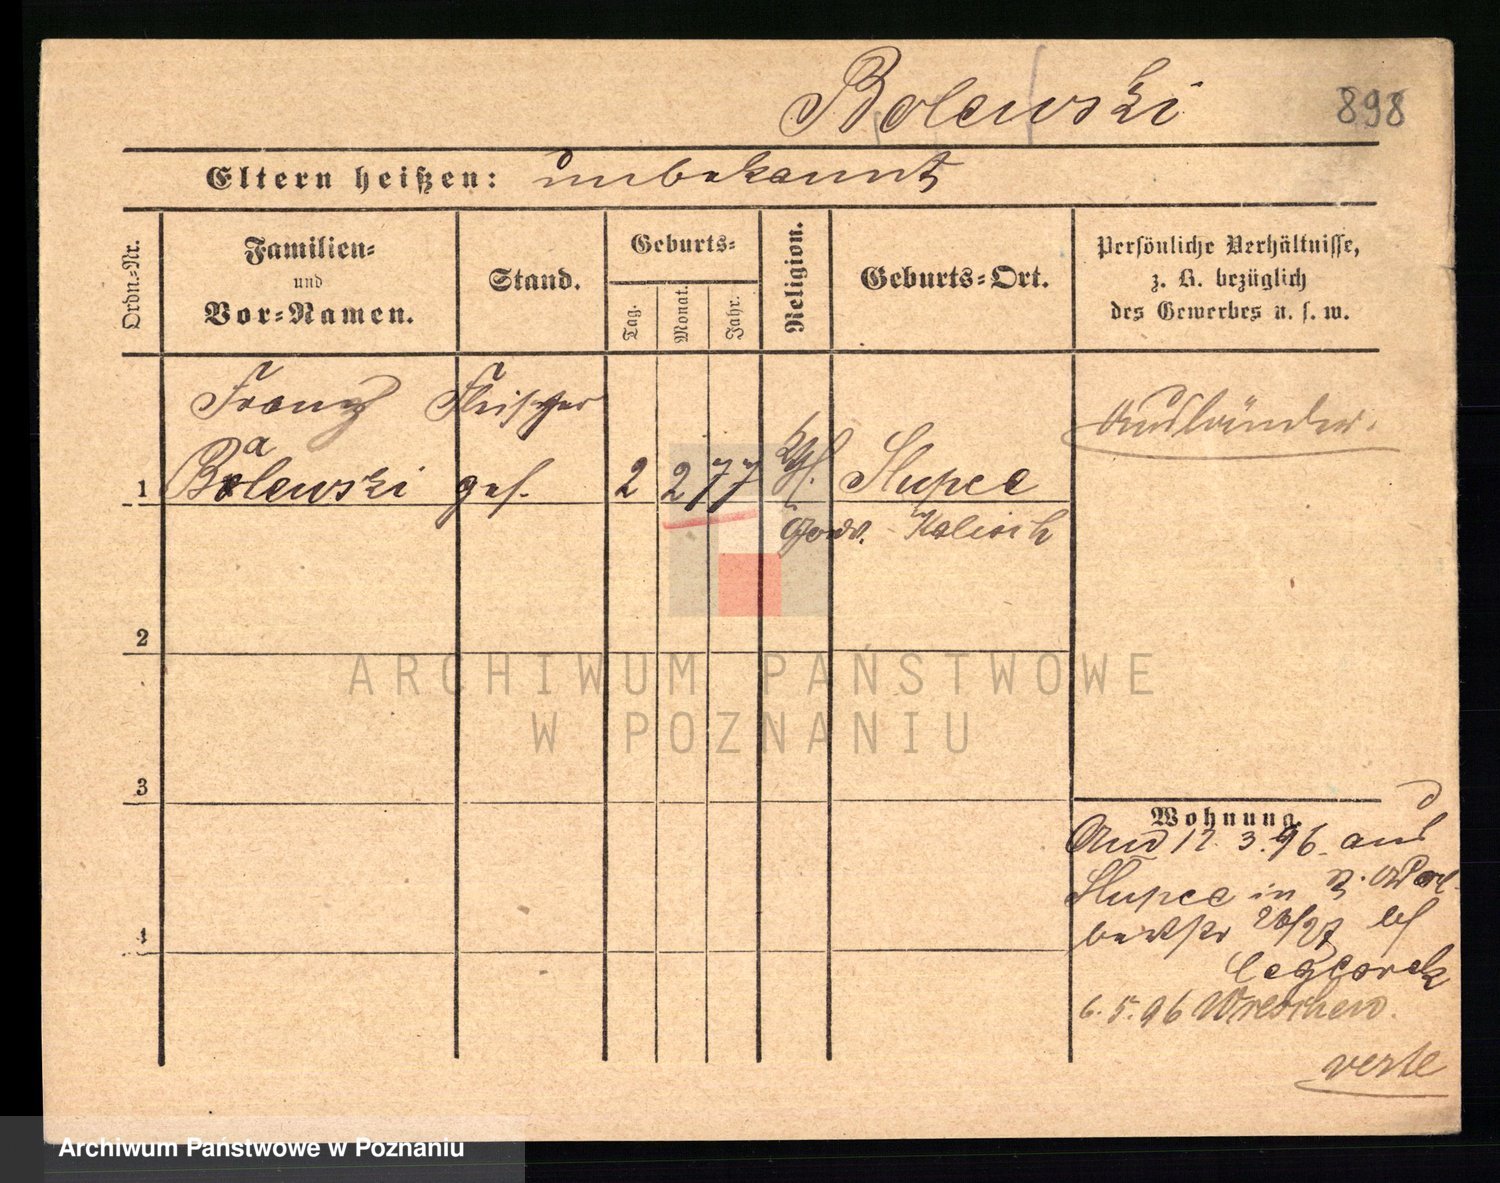 Bolewski 898
Eltern heißen: unbekannt
Ordn.-Nr.
Familien-
und
Vor-Namen.
Stand.
Geburts-
Tag.
Monat.
Jahr.
Religion.
Geburts-Ort.
Persönliche Verhältnisse,
z. B. bezüglich
des Gewerbes u. s. w.
Franz Fleischer
a
1 Bolewski ges. 2 2 77 kth. Slupce
Gouv. Kalisch
Ausländer.
2
3
4
Wohnung.
12. 3. 96. aus
Slupce in
26/27 bei
6. 5. 96 Wreschen.
verte
ARCHIWUM PAŃSTWOWE
W POZNANIU
Archiwum Państwowe w Poznaniu